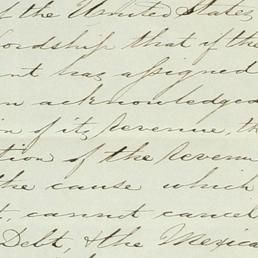 of the United States
Lordship that if the
ent has assigned
n acknowledged
n of its revenue, th
tion of the revenu
the cause which
t, cannot cancel
Debt, & the Mexica